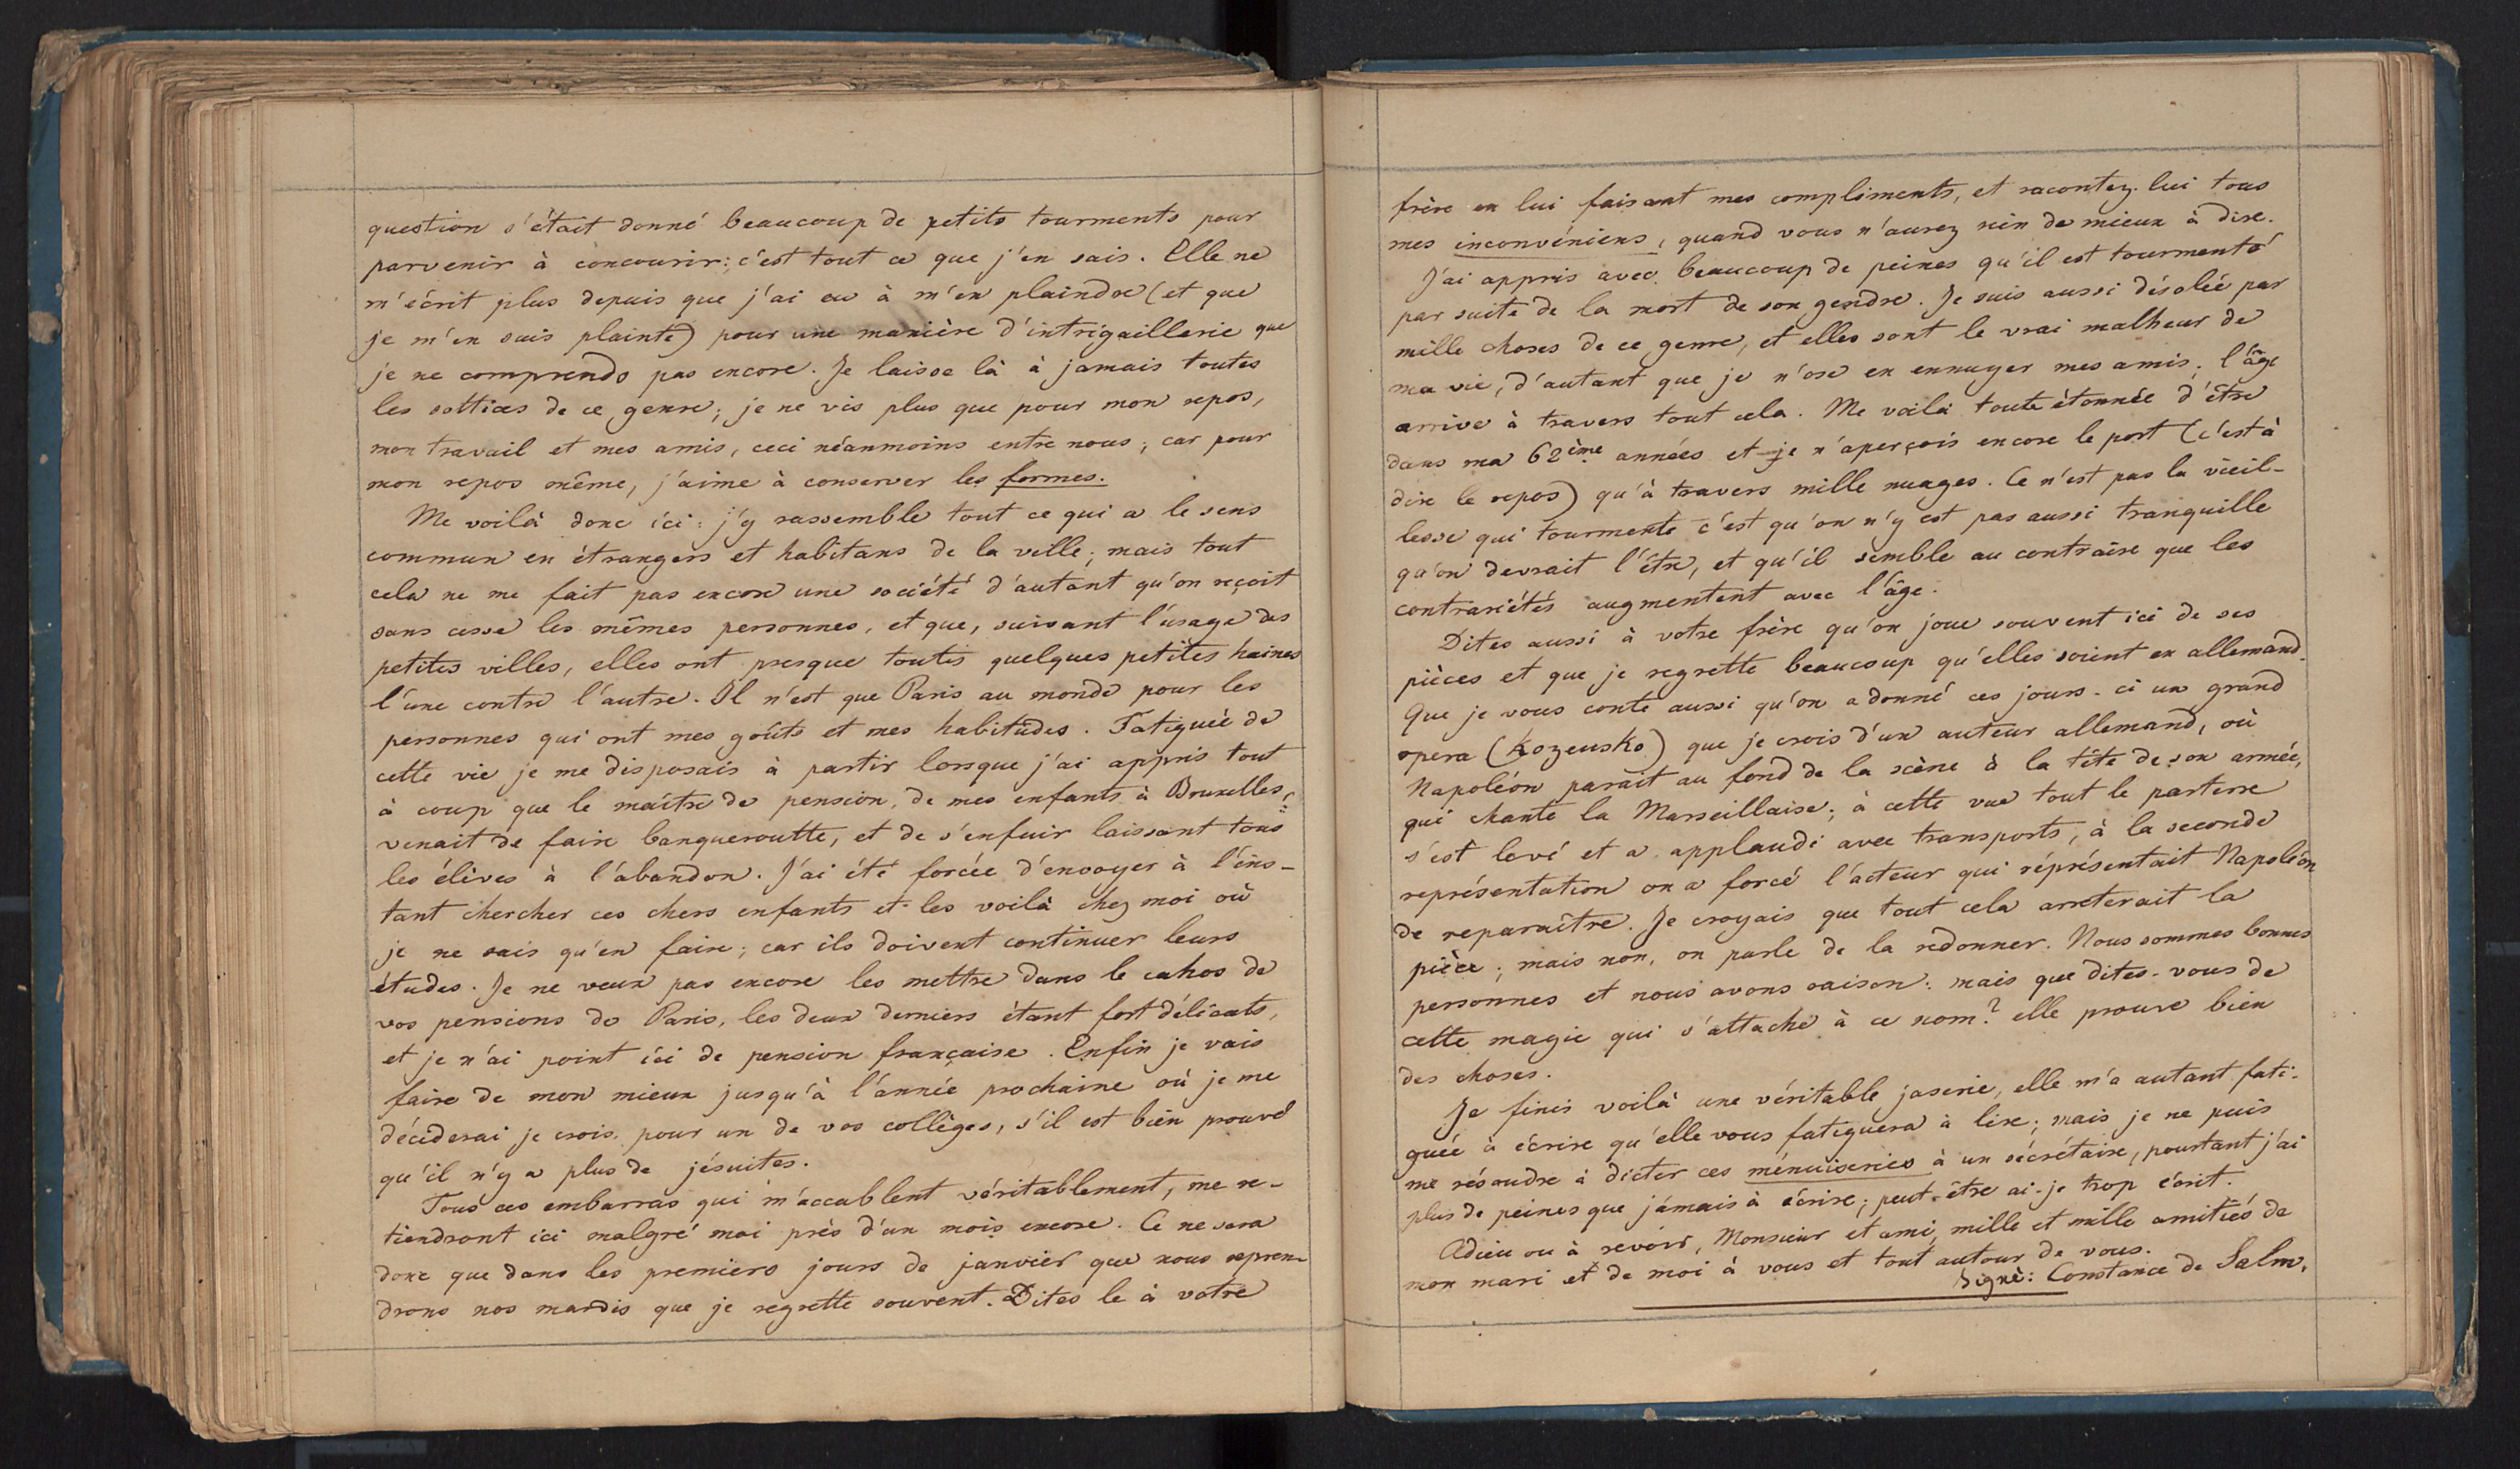 question s'était donné beaucoup de petits tourments pour
parvenir à concourir: c'est tout ce que j'en sais. Elle ne
m'écrit plus depuis que j'ai eu à m'en plaindre (et que
je m'en suis plainte) pour une manière d'intrigaillerie que
je ne comprends pas encore. Je laisse là à jamais toutes
les sottises de ce genre; je ne vis plus que pour mon repos,
mon travail et mes amis, ceci néanmoins entre nous; car pour
mon repos même, j'aime à conserver les formes.
Me voilà donc ici: j'y rassemble tout ce qui a le sens
commun en étrangers et habitans de la ville; mais tout
cela ne me fait pas encore une société d'autant qu'on reçoit
sans cesse les mêmes personnes, et que, suivant l'usage des
petites villes, elles ont presque toutes quelques petites haines
l'une contre l'autre. Il n'est que Paris au monde pour les
personnes qui ont mes goûts et mes habitudes. Fatiguée de
cette vie je me disposais à partir lorsque j'ai appris tout
à coup que le maître de pension, de mes enfants à Bruxelles,
venait de faire banqueroutte, et de s'enfuir laissant tous
les élèves à l'abandon. J'ai été forcée d'envoyer à l'ins-
tant chercher ces chers enfants et les voilà chez moi où
je ne sais qu'en faire; car ils doivent continuer leurs
études. Je ne veux pas encore les mettre dans le cahos de
vos pensions de Paris, les deux derniers étant fort délicats,
et je n'ai point ici de pension française. Enfin je vais
faire de mon mieux jusqu'à l'année prochaine où je me
déciderai, je crois, pour un de vos collèges, s'il est bien prouvé
qu'il n'y a plus de jésuites.
Tous ces embarras qui m'accablent véritablement, me re-
tiendront ici malgré moi près d'un mois encore. Ce ne sera
donc que dans les premiers jours de janvier que nous repren-
drons nos mardis que je regrette souvent. Dites le à votre
frère en lui faisant mes compliments, et racontez-lui tous
mes inconvéniens, quand vous n'aurez rien de mieux à dire.
J'ai appris avec beaucoup de peines qu'il est tourmenté
par suite de la mort de son gendre. Je suis aussi désolée par
mille choses de ce genre, et elles sont le vrai malheur de
ma vie, d'autant que je n'ose en ennuyer mes amis; l'âge
arrive à travers tout cela. Me voilà toute étonnée d'être
dans ma 62ème années et je n'aperçois encore le port (c'est à
dire le repos) qu'à travers mille nuages. Ce n'est pas la vieil-
lesse qui tourmente c'est qu'on n'y est pas aussi tranquille
qu'on devrait l'être, et qu'il semble au contraire que les
contrariétés augmentent avec l'âge.
Dites aussi à votre frère qu'on joue souvent ici de ses
pièces et que je regrette beaucoup qu'elles soient en allemand.
Que je vous conte aussi qu'on a donné ces jours-ci un grand
opera (Kozeusko) que je crois d'un auteur allemand, où
Napoléon parait au fond de la scène à la tête de son armée,
qui chante la Marseillaise; à cette vue tout le parterre
s'est levé et a applaudi avec transports, à la seconde
représentation on a forcé l'acteur qui représentait Napoléon
de reparaître. Je croyais que tout cela arreterait la
pièce; mais non, on parle de la redonner. Nous sommes bonnes
personnes et nous avons raison: mais que dites-vous de
cette magie qui s'attache à ce nom? elle prouve bien
des choses.
Je finis voilà une véritable jaserie, elle m'a autant fati-
guée à écrire qu'elle vous fatiguera à lire; mais je ne puis
me résoudre à dicter ces ménuiseries à un sécrétaire, pourtant j'ai
plus de peines que jamais à écrire; peut-être ai-je trop écrit.
Adieu ou à revoir, Monsieur et ami, mille et mille amitiés de
mon mari et de moi à vous et tout autour de vous.
Signé: Constance de Salm.